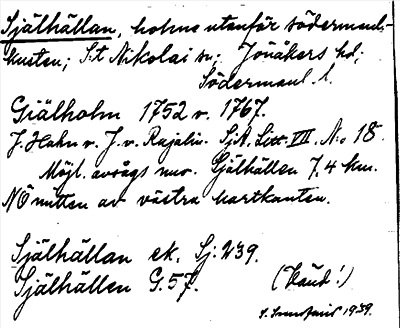 Själhällan, holme utanför södermanl.-
kusten; S:t Nikolai sn; Jönåkers hd;
Södermanl. l.
Giälholm 1752 v. 1767.
J. Hahn v. J. v. Rajalin. SjA. Litt. VII. N:o 18.
Möjl. avsågs nuv. Själhällen 7,4 km.
NÖ mitten av västra kartkanten.
Själhällan ek. Sj: 239.
Själhällen G. 57. (Känd!)
1939.